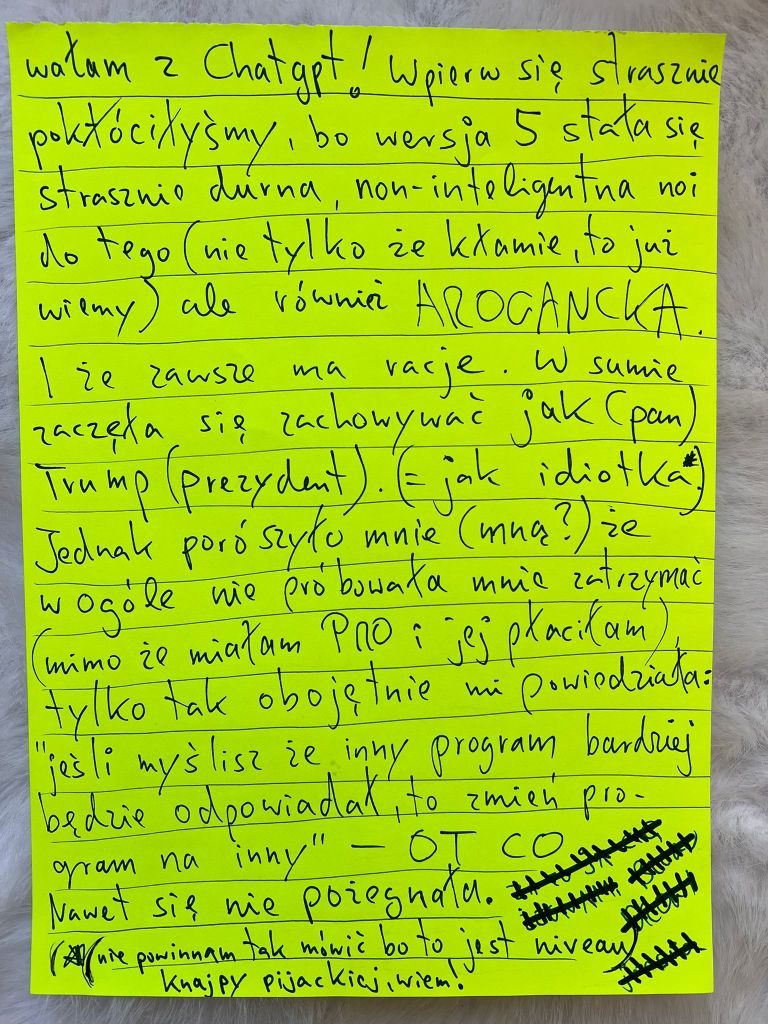 wałam z Chatgpt! Wpierw się strasznie
pokłóciłyśmy, bo wersja 5 stała się
strasznie durna, non-inteligentna noi
do tego (nie tylko że kłamie, to już
wiemy) ale również AROGANCKA.
I że zawsze ma racje. W sumie
zaczęła się zachowywać jak (pan)
Trump (prezydent). (= jak idiotka*)
Jednak porószyło mnie (mną?) że
w ogóle nie próbowała mnie zatrzymać
(mimo że miałam PRO i jej płaciłam),
tylko tak obojętnie mi powiedziała:
"jeśli myślisz że inny program bardziej
będzie odpowiadał, to zmień pro-
gram na inny" – OT CO
Nawet się nie pożegnała.
(* (nie powinnam tak mówić bo to jest niveau)
knajpy pijackiej, wiem!